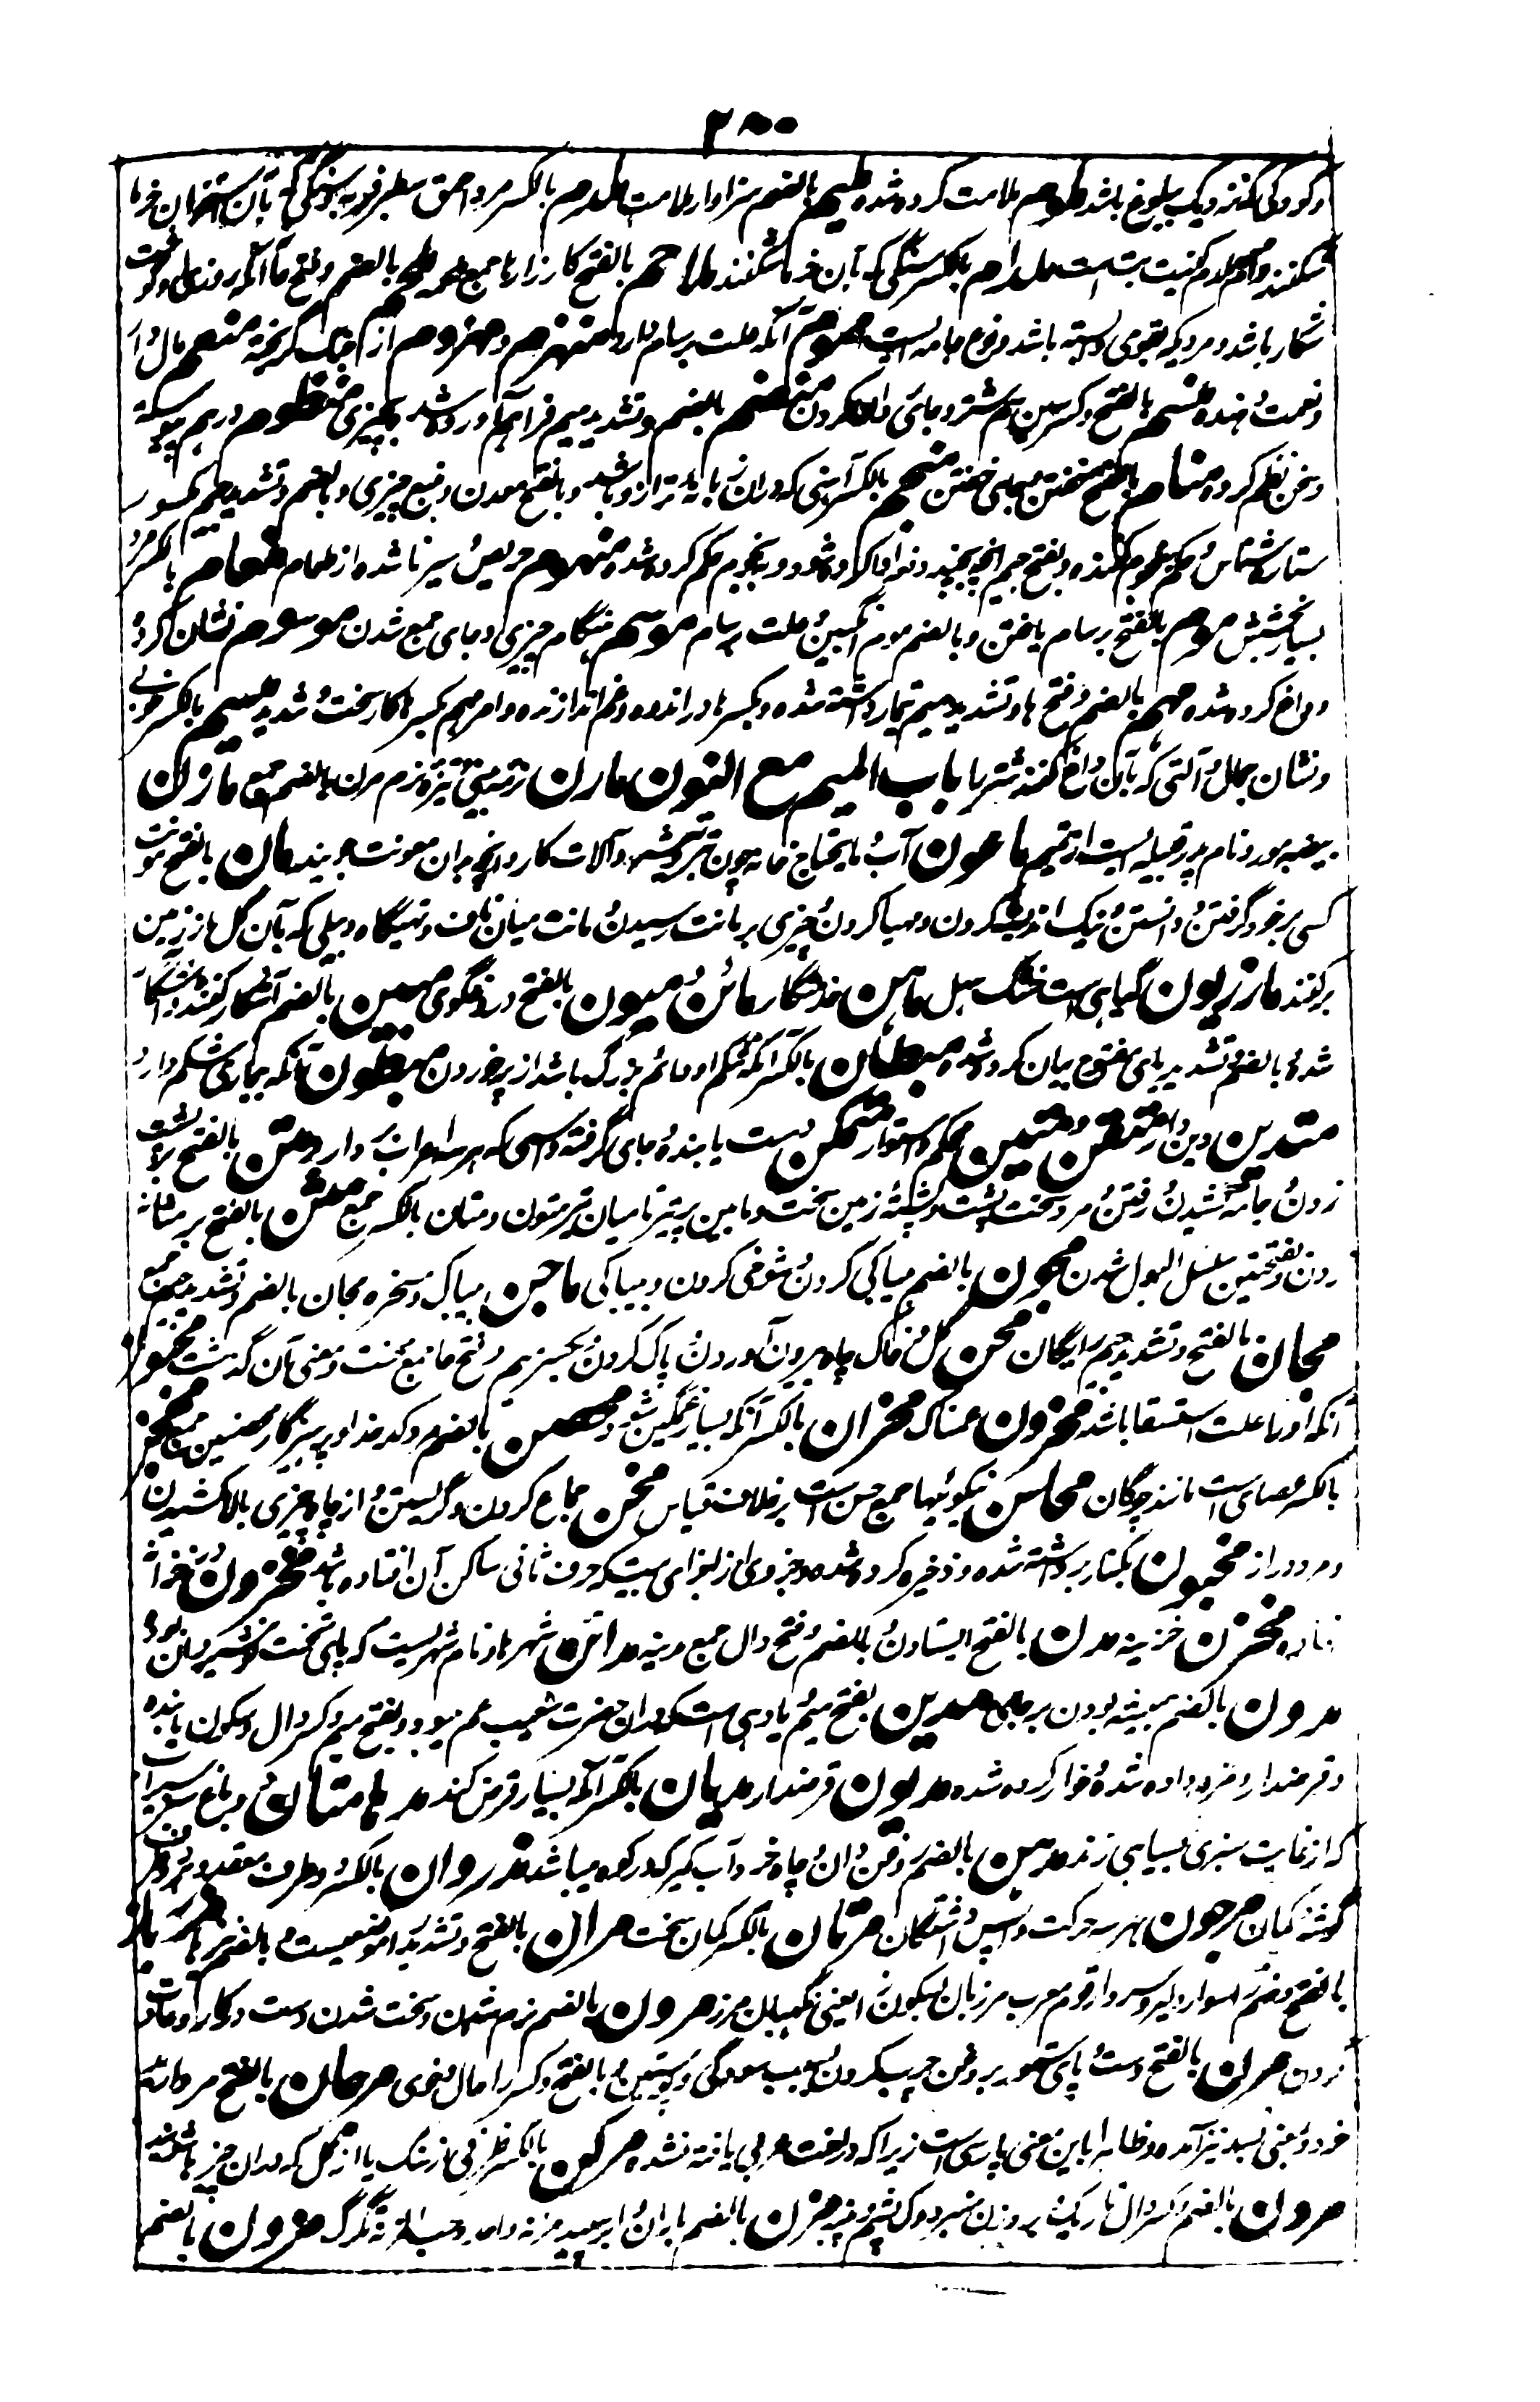 ۲۵۵
وکودکی کنند ونیک ببلوغ باشد ملوم ملامت کرده شده ملیم بالضم سزاوار ملامت ملدم بالکسر مرد احمق سطبر فربه وسنگی که بآن استخوان خرما
شکنند وام ملدم کنیت تب است ملدام بالکسر سنگی که بآن خرما شکنند ملاحم بالفتح کارزارها جمع ملحمه ملحم بالضم وفتح حا آنکه روزیش گوشت
شکار باشد ومردیکه بقومی وابسته باشد ونوع جامه ایست مموم آنکه علت برسام دارد منهزم ومهزوم از جنگ گریخته منعم مال دار
ونعمت دهنده منسم بالفتح وکسر سین سم شتر وجای منضم بالضم وتشدید میم فراهم آورده شده بچیزی منظوم درهم پیوسته
وسخن نظم کرده منام بالفتح خفتن وجای خفتن منجم بالکسر آهنی که دران زبانه ترازو باشد وبالفتح معدن ومنبع چیزی وبالضم وتشدید جیم مکسور
ستاره شناس وحکم بنجوم کننده وبفتح جیم آنچه وبنجوم حکم کرده شده منهوم حریص وسیر ناشده از طعام منعام بالکسر مرد
بسیار بخشش موم بالفتح برسام یافتن وبالضم موم انگبین وعلت برسام موسم هنگام چیزی وجای جمع شدن موسوم نشان کرده
وداغ کرده شده مهم بالضم وفتح ها وتشدید میم تیمار داشته شده وبکسر ها در اندوه وغم اندازنده وامر مهم بکسر ها کار سخت وشدید میسم بالکسر خوبی
ونشان جمال وآلتی که بآن داغ کنند شتر را باب المیم مع النون مارن نرمه بینی ونیزه نرم مرن بالضم جمع مازن
بیضه مور ونام پدر قبیله ایست از تمیم ماعون آب وما یحتاج خانه چون تبر وتیشه وآلات کار وآنچه بدان معونت جویند مان بالفتح مونت
کسی بر خود گرفتن ودانستن ونیک اندیشه کردن ومهیا کردن چیزی بر مانت رسیدن ومانت میان ناف وتهیگاه وبیلی که بآن گل از زمین
برکنند مازریون گیاهی است ماهن خدمتگار مائن ومیون بالفتح دروغگوی مبین بالضم آشکار کننده وآشکارا
شده وبالضم وتشدید یای مفتوح بیان کرده شده مبطان بالکسر آنکه شکم او دائم بزرگ باشد از پرخوردن مبطون آنکه بیماری شکم دارد
متدین دین دار متقن ومتین محکم واستوار متمکن دست یابنده وجای گرفته واسمی که هر سه اعراب دارد متن بالفتح بر پشت
زدن وجامع شدن ورفتن ومرد سخت پشت وپشته زمین سخت ومابین پر تیر تا میان تیر متون ومتان بالکسر جمع مثن بالفتح بر مثانه
زدن وبفتحتین سلسل البول شدن مجون بالضم بیباکی کردن وشوخی کردن وبیباکی ماجن بیباک ومسخره مجان بالضم وتشدید جیم جمع
مجان بالفتح وتشدید جیم رایگان محن گل وخاک چاه بیرون آوردن وپاک کردن بکسر میم وفتح حا جمع محنت ومعنی آن گذشت محقون
آنکه او را علت استسقا باشد محزون غمناک محزان بالکسر آنکه بسیار غمگین شود محصن بالضم مرد کدخدا وپرهیزگار محصنین جمع محجن
بالکسر عصای است مانند چوگان محاسن نیکوئیها جمع حسن است برخلاف قیاس مخن جماع کردن وگریستن واز چاه چیزی بالا کشیدن
ومرد دراز مخبون بکنار برداشته شده وذخیره کرده شده وجزوی از اجزای بیت که حرف ثانی ساکن آن افتاده باشد مخزون در خزانه
نهاده مخزن خزینه مدن بالفتح ایستادن وبالضم وفتح دال جمع مدینه مدائن شهرها ونام شهریست که پای تخت نوشیروان بوده
مدون بالضم همیشه بودن بر جای مدین بفتح میم ویا دهی است که دران حضرت شعیب عم میبود وبفتح میم وکسر دال وسکون یا بنده
وقرضدار وجزا داده شده وخوار کرده شده مدیون قرضدار مدیان بالکسر آنکه بسیار قرض کند مدهامتان دو باغ سبز سیراب
که از غایت سبزی بسیاهی زند مدهن بالضم روغن دان وچاه خرد وآب گیر که در کوه میباشد مذروان بالکسر دو طرف مقعد وهر دو طرف
گوشه کمان مرجون بهر سه حرکت واپس داشتگان مرنان بالکسر کمان سخت مران بالفتح وتشدید را موضعیست وبالضم نیزه ها مرزبان
بالفتح وضم زا سوار دلیر وسردار قوم معرب مرزبان بسکون زا یعنی نگهبان مرز مرون بالضم نرم شدن وسخت شدن دست در کار وعادت
کردن مرن بالفتح دست وپای ستور بروغن چرب کردن بسبب سودگی وپوستین وبالفتح وکسر را حال وخوی مرجان بالفتح مروارید
خرد وبمعنی بسد نیز آمده وظاهرا باین معنی پارسی است زیرا که در لغت عربی یافته نشده مرکن بالکسر ظرفی از سنگ یا از گل که دران چیزها شویند
مردن بالضم وکسر دال تاریک وبر وزن منبر دوک پشم ریسی مزن بالضم باران وابر سپید مزنه واحد وحب المزنه تگرگ مزون بالضم